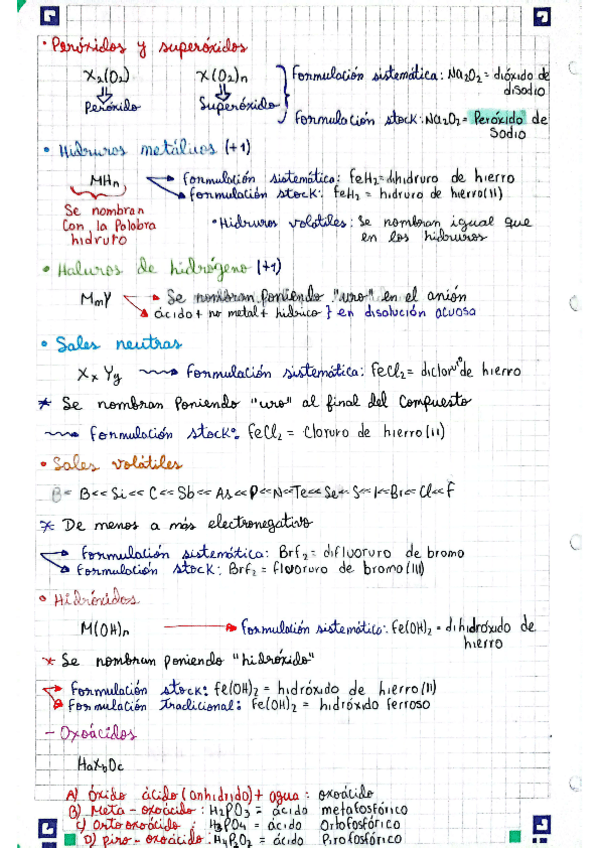 · Peróxidos y superóxidos
X₂(O₂) X(O₂)n
Formulación sistemática: Na₂O₂ = dióxido de disodio
Peróxido Superóxido
Formulación stock: Na₂O₂ = Peróxido de Sodio
• Hidruros metálicos (+1)
MHn
Formulación sistemática: FeH₂ = dihidruro de hierro
Formulación stock: FeH₂ = hidruro de hierro(II)
Se nombran
Con la Palabra
hidruro
• Hidruros volátiles: Se nombran igual que
en los hidruros
• Haluros de hidrógeno (+1)
MmY
Se nombran Poniendo "uro" en el anión
ácido + no metal + hídrico } en disolución acuosa
• Sales neutras
Xx Yy Formulación sistemática: FeCl₂ = dicloruro de hierro
* Se nombran Poniendo "uro" al final del Compuesto
Formulación stock: FeCl₂ = Cloruro de hierro(II)
• Sales volátiles
B<< Si << C << Sb << As << P << N << Te << Se << S << I << Br << Cl << F
* De menos a más electronegativo
Formulación sistemática: BrF₂ = difluoruro de bromo
Formulación stock: BrF₂ = fluoruro de bromo(III)
• Hidróxidos
M(OH)n Formulación sistemática: Fe(OH)₂ = dihidróxido de
hierro
* Se nombran poniendo "hidróxido"
Formulación stock: Fe(OH)₂ = hidróxido de hierro(II)
Formulación tradicional: Fe(OH)₂ = hidróxido ferroso
- Oxoácidos
HaXbOc
A) óxido ácido (anhidrido) + agua : oxoácido
B) Meta-oxoácido : H₂PO₃ = ácido metafosfórico
C) Orto oxoácido : H₃PO₄ = ácido Ortofosfórico
D) piro-oxoácido : H₄PO₂ = ácido Pirofosfórico